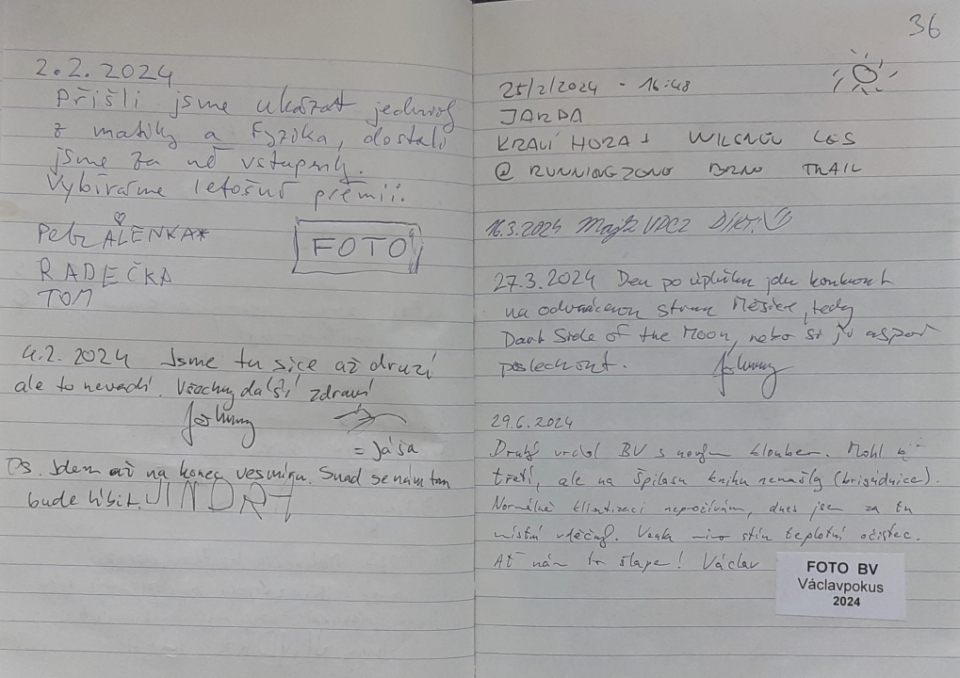 2.2.2024
Přišli jsme ukázat jedničky
z matiky a fyzika, dostali
jsme za ně vstupenky.
Vybíráme letošní prémii.
Petr ALENKA*
FOTO
RADEČKA
TOM
4.2. 2024 Jsme tu sice až druzí
ale to nevadí. Všechny další zdraví
Johnny
= Jáša
PS. Jdem až na konec vesmíru. Snad se nám tam
bude líbit. JINDRA
36
25/2/2024 - 16:48
JARDA
KRAVÍ HORA + WILSNŮV LES
@ RUNNINGZONE BRNO TRAIL
16.3.2024
27.3.2024 Den po úplňku jdu kouknout
na odvrácenou stranu Měsíce, tedy
Dark Side of the Moon, nebo si ju aspoň
poslechnout. Johnny
29.6.2024
Druhý vrchol BV s novým kloubem. Mohl být
třetí, ale na Špilasu knihu nenašly (brigádnice).
Normálně klimatizaci neprožívám, dnes jsem za tu
místní vděčný. Venku mimo stín teplotní očistec.
Ať nám to šlape! Václav
FOTO BV
Václavpokus
2024